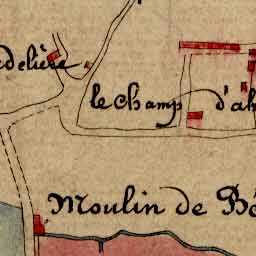 delière
le champ d'ah
Moulin de Bé